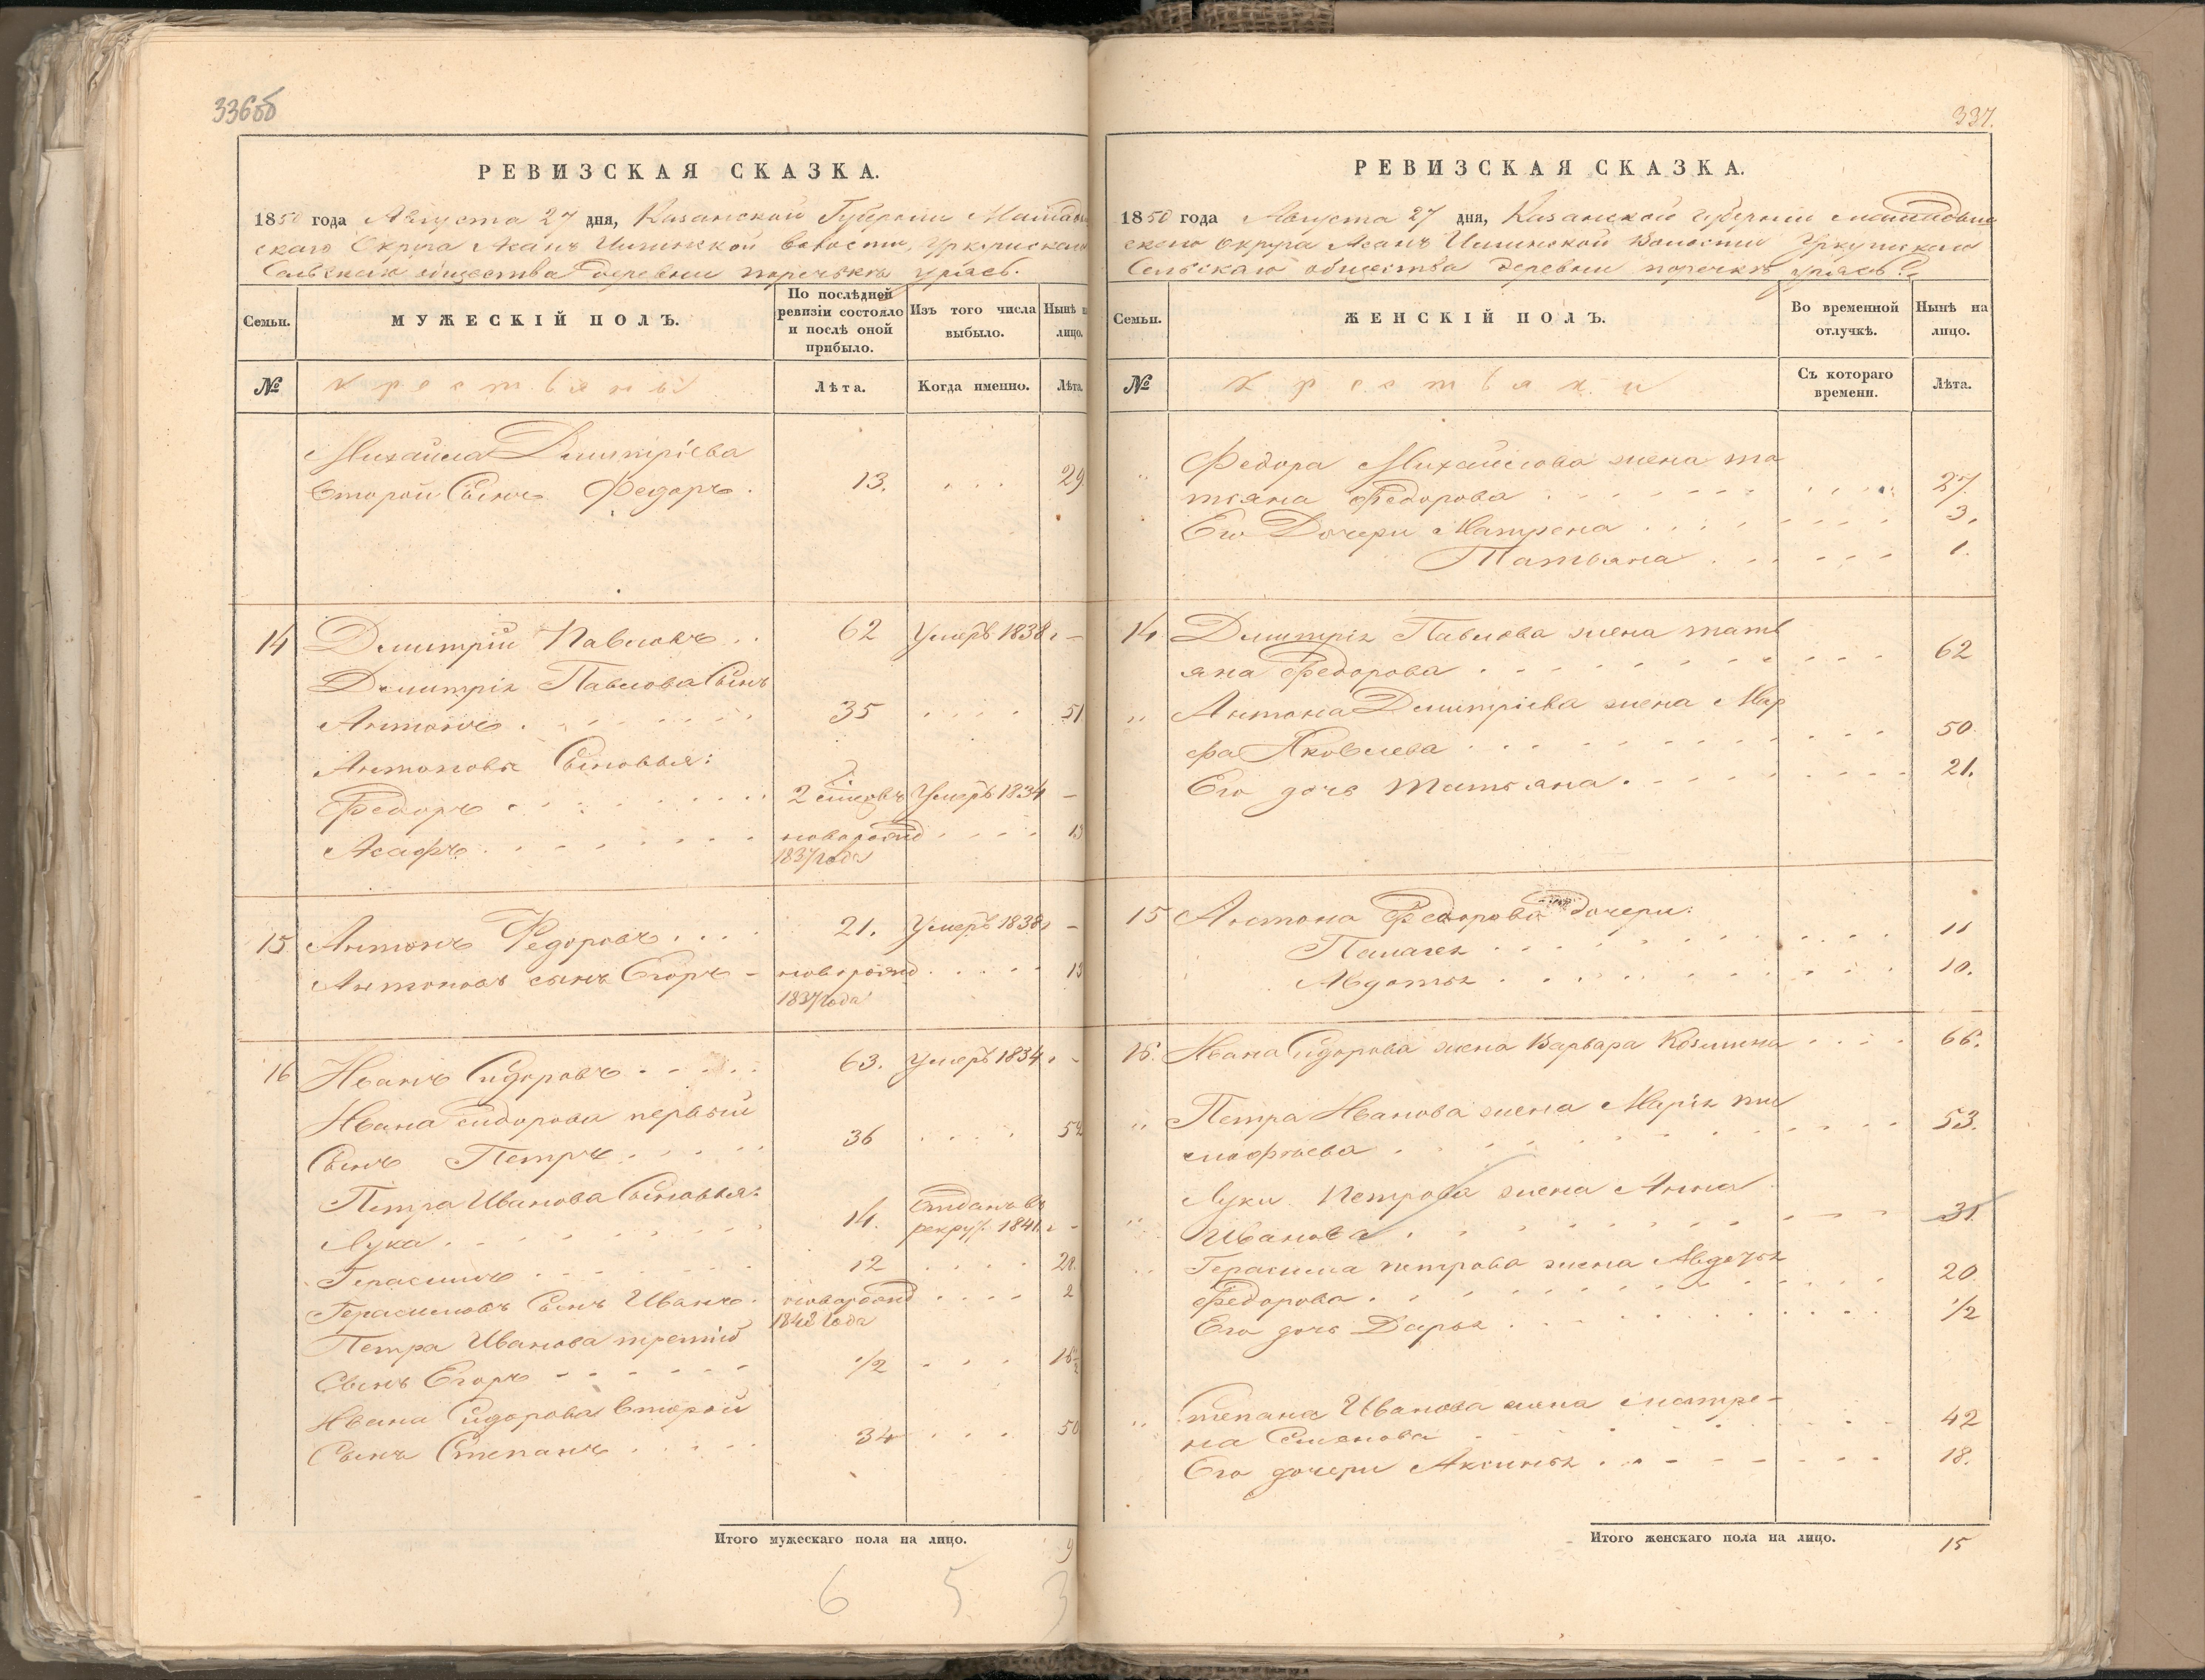 336об
РЕВИЗСКАЯ СКАЗКА.
1850 года Августа 27 дня, Казанской Губернiи Мамады
скаго Округа Асанъ Илинской волости, Уркушскаго
Сельскаго общества деревни поречькъ урясь.
Семьи.
МУЖЕСКIЙ ПОЛЪ.
По послѣдней
ревизiи состояло
и послѣ оной
прибыло.
Изъ того числа
выбыло.
Нынѣ н
лицо.
№
крестьяны
Лѣта.
Когда именно.
Лѣта.
Михайла Димитрiева
второй Сынъ Федоръ. 13. 29
14 Димитрiй Павловъ 62 Умеръ 1838 г —
Димитрiя Павлова Сынъ
Антонъ 35 51
Антоновы Сыновья:
Федоръ 2 Умеръ 1834 —
Асафъ новорожд 13
1837 года
15 Антонъ Федоровъ 21. Умеръ 1838 г —
Антоновъ сынъ Егоръ — новорожд 13
1837 года
16 Иванъ Сидоровъ 63. умеръ 1834 г -
Ивана Сидорова первый
Сынъ Петръ 36 52
Петра Иванова Сыновья:
Лука 14. отданъ въ
рекрут. 1841. г -
Герасимъ 12 28.
Герасимовъ Сынъ Иванъ новорожд 2
1848 года
Петра Иванова третiй
Сынъ Егоръ 1/2 16 1/2
Ивана Сидорова второй
Сынъ Степанъ 34 50
Итого мужескаго пола на лицо. 9
6 5 3
337.
РЕВИЗСКАЯ СКАЗКА.
1850 года Августа 27 дня, Казанской губернiи мамадыш
скаго округа Асанъ Илинской Волости Уркушскаго
Сельскаго общества деревни поречкъ урясь
Семьи.
ЖЕНСКIЙ ПОЛЪ.
Во временной
отлучкѣ.
Нынѣ на
лицо.
№
крестьянки
Съ котораго
времени.
Лѣта.
" Федора Михайлова жена та
тьяна Федорова 27.
Его Дочери Матрена 3.
Татьяна 1.
14 Димитрiя Павлова жена тать
яна Федорова 62
" Антона Димитрiева жена Мар
фа Яковлева 50.
Его дочь Татьяна. 21.
15 Антона Федорова дочери:
Палагея 11
Авдотья 10.
16. Ивана Сидорова жена Варвара Козмина 66.
" Петра Иванова жена Марiя ти
мофѣева 53.
" Луки Петрова жена Анна
Иванова 31
" Герасима петрова жена Авдотья
Федорова 20
Его дочь Дарья 1/2
" Степана Иванова жена матре-
на Семенова 42
Его дочери Аксинья 18.
Итого женскаго пола на лицо. 15